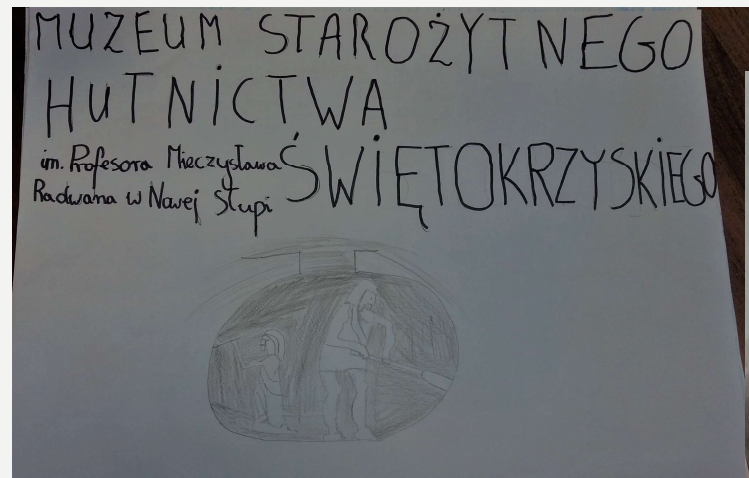 MUZEUM STAROŻYTNEGO
HUTNICTWA
ŚWIĘTOKRZYSKIEGO
im. Profesora Mieczysława
Radwana w Nowej Słupi